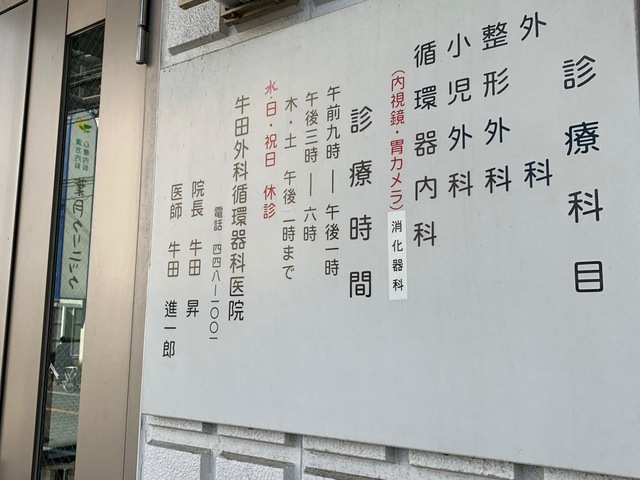 診療科目
外科
整形外科
小児外科
循環器内科
（内視鏡・胃カメラ）消化器科
診療時間
午前九時―午後一時
午後三時―六時
木・土 午後一時まで
水・日・祝日 休診
牛田外科循環器科医院
電話 四四八―一〇〇一
院長 牛田 昇
医師 牛田 進一郎
心療内科
漢方内科
葉月クリニック